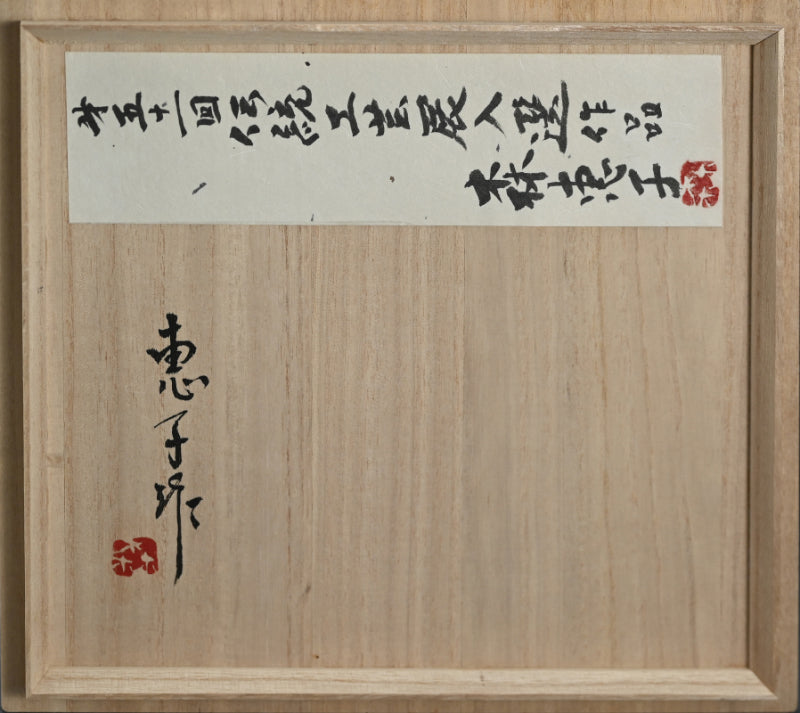 第五十一回伝統工芸展入選作品
恵子
恵子作